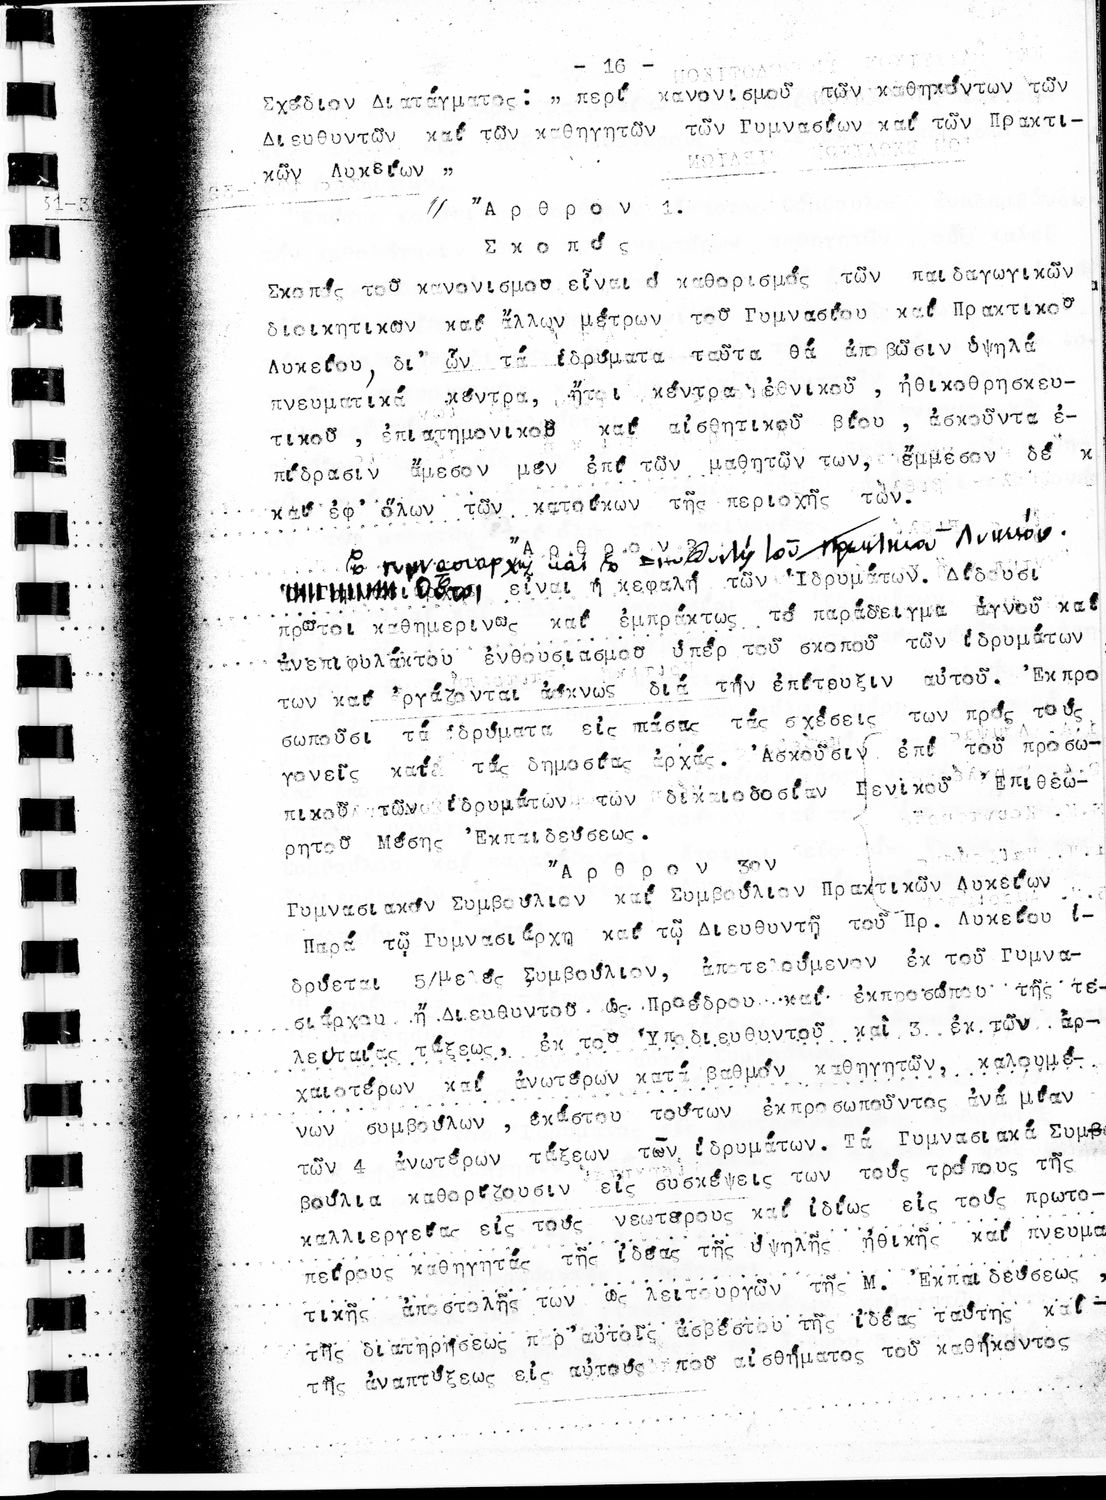 - 16 -
Σχέδιον Διατάγματος: „ περί κανονισμοῦ τῶν καθηκόντων τῶν
Διευθυντῶν καί τῶν καθηγητῶν τῶν Γυμνασίων καί τῶν Πρακτι-
κῶν Λυκείων „
"Α ρ θ ρ ο ν 1.
Σ κ ο π ό ς
Σκοπός τοῦ κανονισμου εἶναι ὁ καθορισμός τῶν παιδαγωγικῶν
διοικητικων καί ἄλλων μέτρων τοῦ Γυμνασίου καί Πρακτικοῦ
Λυκείου, δι' ὧν τά ἱδρύματα ταῦτα θά ἀποβῶσιν ὑψηλά
πνευματικά κέντρα, ἤτοι κέντρα ἐθνικοῦ , ἠθικοθρησκευ-
τικοῦ , ἐπιστημονικοῦ καί αἰσθητικοῦ βίου , ἀσκοῦντα ἐ-
πίδρασιν ἄμεσον μεν ἐπί τῶν μαθητῶν των, ἔμμεσον δέ κ
καί ἐφ' ὅλων τῶν κατοίκων τῆς περιοχῆς τῶν.
"Α ρ θ ρ ο ν 2
Ὁ γυμνασιαρχης καί ὁ Διευθυντής τοῦ Πρακτικοῦ Λυκείου.
Οὗτοι εἶναι ἡ κεφαλή τῶν Ἱδρυμάτων. Δίδουσι
πρῶτοι καθημερινῶς καί ἐμπράκτως τό παράδειγμα ἁγνοῦ καί
ἀνεπιφυλάκτου ἐνθουσιασμοῦ ὑπέρ τοῦ σκοποῦ τῶν ἱδρυμάτων
των καί ἐργάζονται ἀόκνως διά τήν ἐπίτευξιν αὐτοῦ. Ἐκπρο
σωποῦσι τά ἱδρύματα εἰς πάσας τάς σχέσεις των πρός τούς
γονεῖς καί τάς δημοσίας ἀρχάς. Ἀσκοῦσιν ἐπί τοῦ προσω-
πικοῦ τῶν ἱδρυμάτων τῶν δικαιοδοσίαν Γενικοῦ Ἐπιθεω-
ρητοῦ Μέσης Ἐκπαιδεύσεως.
"Α ρ θ ρ ο ν 3ον
Γυμνασιακόν Συμβούλιον καί Συμβούλιον Πρακτικῶν Λυκείων
Παρά τῷ Γυμνασιάρχῃ καί τῷ Διευθυντῇ τοῦ Πρ. Λυκείου ἱ-
δρύεται 5/μελές Συμβούλιον, ἀποτελούμενον ἐκ τοῦ Γυμνα-
σιάρχου ἤ Διευθυντοῦ ὡς Προέδρου καί ἐκπροσώπου τῆς τε-
λευταίας τάξεως, ἐκ τοῦ Ὑποδιευθυντοῦ καί 3 ἐκ τῶν ἀρ-
χαιοτέρων καί ἀνωτέρων κατά βαθμόν καθηγητῶν, καλουμέ-
νων συμβούλων , ἑκάστου τούτων ἐκπροσωποῦντος ἀνά μίαν
τῶν 4 ἀνωτέρων τάξεων τῶν ἱδρυμάτων. Τά Γυμνασιακά Συμβο
βούλια καθορίζουσιν εἰς συσκέψεις των τούς τρόπους τῆς
καλλιεργείας εἰς τούς νεωτέρους καί ἰδίως εἰς τούς πρωτο-
πείρους καθηγητάς τῆς ἰδέας τῆς ὑψηλῆς ἠθικῆς καί πνευμα
τικῆς ἀποστολῆς των ὡς λειτουργῶν τῆς Μ. Ἐκπαιδεύσεως ,
τῆς διατηρήσεως π ρ'αὐτοῖς ἀσβέστου τῆς ἰδέας ταύτης καί -
τῆς ἀναπτύξεως εἰς αὐτούς τοῦ αἰσθήματος τοῦ καθήκοντος